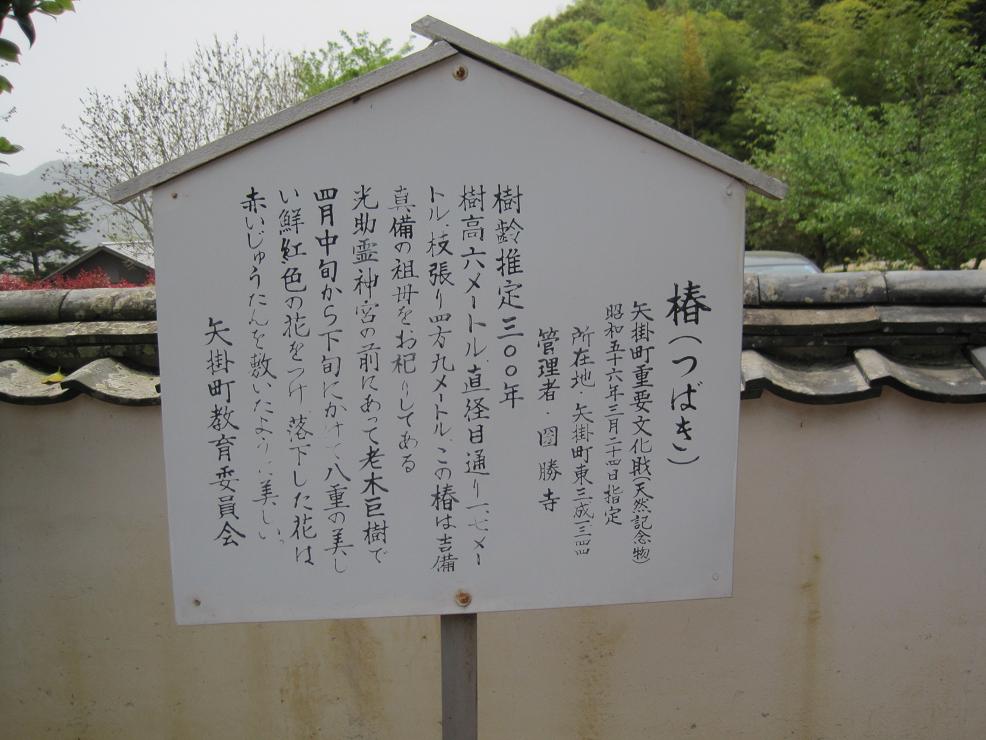 椿(つばき)
矢掛町重要文化財(天然記念物)
昭和五十六年三月二十四日指定
所在地・矢掛町東三成一三四四
管理者・圀勝寺
樹齢推定三〇〇年
樹高六メートル、直径目通り一、七メー
トル、枝張り四方九メートル、この椿は吉備
真備の祖母をお祀りしてある
光助霊神宮の前にあって老木巨樹で
四月中旬から下旬にかけて八重の美し
い鮮紅色の花をつけ、落下した花は
赤いじゅうたんを敷いたように美しい。
矢掛町教育委員会